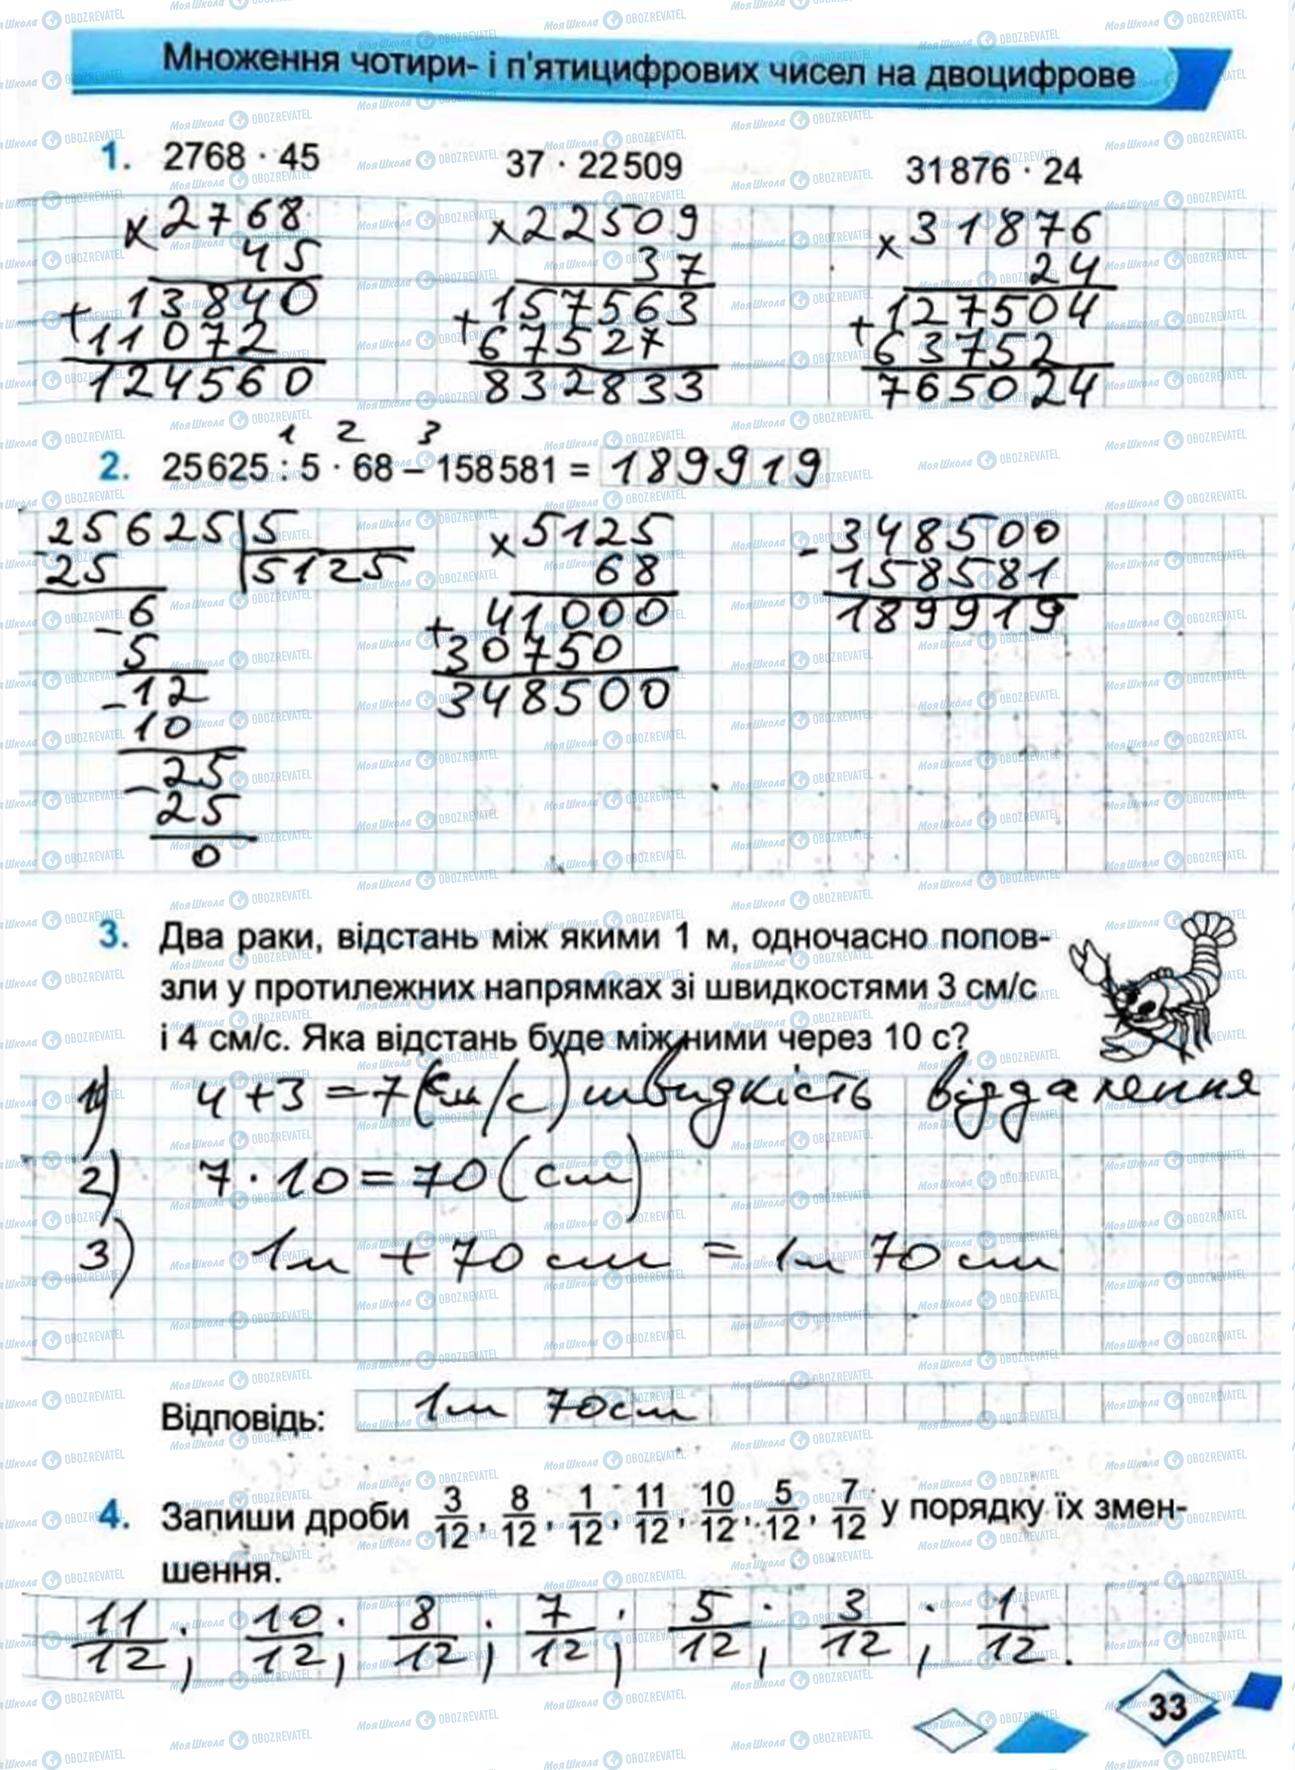 Множення чотири- і п'ятицифрових чисел на двоцифрове
1. 2768 · 45 37 · 22 509 31 876 · 24
× 2768 × 22509 × 31876
45 37 24
+ 13840 + 157563 + 127504
11072 67527 63752
124560 832833 765024
1 2 3
2. 25 625 : 5 · 68 – 158 581 = 189919
25625 5 × 5125 - 348500
25 5125 68 158581
- 6 + 41000 189919
5 30750
- 12 348500
10
- 25
25
0
3. Два раки, відстань між якими 1 м, одночасно попов-
зли у протилежних напрямках зі швидкостями 3 см/с
і 4 см/с. Яка відстань буде між ними через 10 с?
1) 4 + 3 = 7 (см/с) швидкість віддалення
2) 7 · 10 = 70 (см)
3) 1м + 70 см = 1м 70 см
Відповідь: 1м 70см
4. Запиши дроби 3/12, 8/12, 1/12, 11/12, 10/12, 5/12, 7/12 у порядку їх змен-
шення.
11/12; 10/12; 8/12; 7/12; 5/12; 3/12; 1/12.
33
Моя Школа OBOZREVATEL